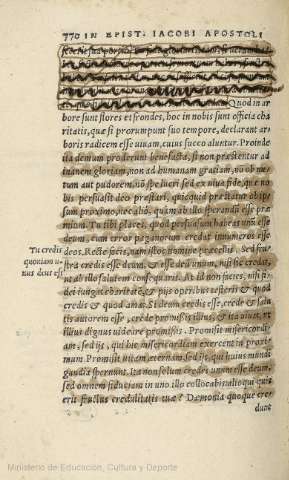 770 IN EPIST. IACOBI APOSTOLI
Quod in ar
bore sunt flores et frondes, hoc in nobis sunt officia cha
ritatis, quæ si prorumpunt suo tempore, declarant ar
boris radicem esse uiuam, cuius succo aluntur. Proinde
ita demum proderunt benefacta, si non præstentur ad
inanem gloriam, non ad humanam gratiam, uo ob me-
tum aut pudorem, nō spe lucri sed ex uiua fide, quæ no
bis persuasit deo præstari, quicquid præstatur ob ip
sum proximo, nec aliū, quàm ab illo sperandū esse præ
mium. Tu tibi places, quod persuasum habeas unū esse
deum, cum error paganorum credat innumeros esse
Tu credis
quoniam u-
nus deus est
deos. Rectè facis, nam isthoc
stra credis esse deum, & esse deū unum, nisi sic credas,
ut ab illo salutem consequaris. At id non facies, nisi fi-
dei iungas charitatē, & pijs operibus testeris & quod
credis & quod amas. Si deum credis esse, crede & salu
tis autorem esse, crede promissis illius, & ita uiuas, ut
illius dignus uideare promissis. Promisit misericordi
am, sed ijs, qui hic misericordiam exercent in proxi-
mum. Promisit uitam æternam, sed ijs, qui huius mundi
gaudia spernunt. Ita non solum credes unum esse deum,
sed omnem fiduciam in uno illo collocabis, alioqui quis
erit fructus credulitatis tuæ? Dæmonia quoque cre
dunt
Ministerio de Educación, Cultura y Deporte